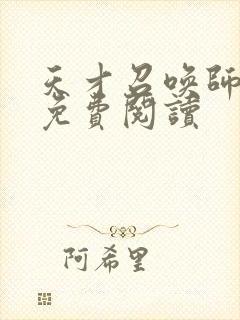 天才召喚師
免費閱讀
阿希里